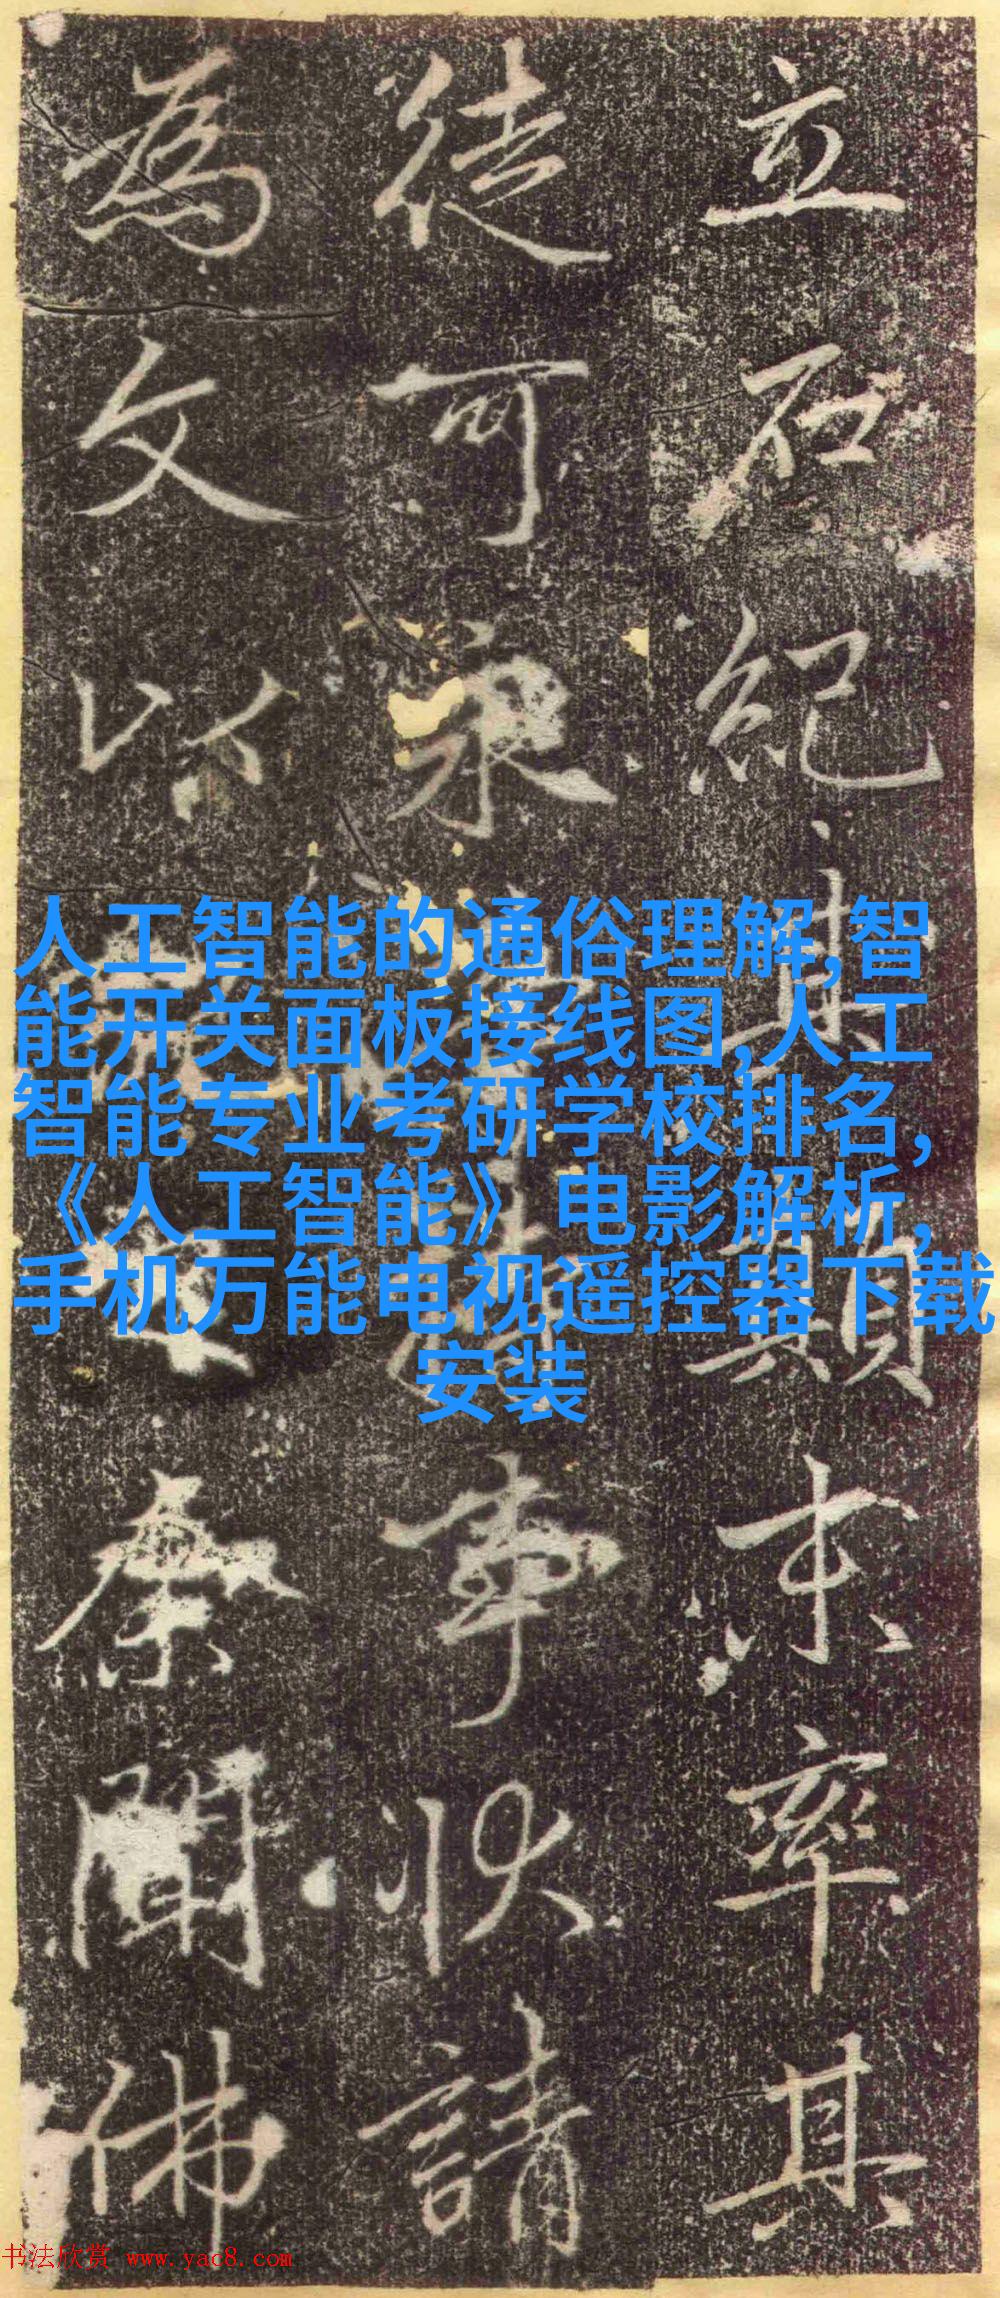 立石紀其顛末率其
徒可永事狀請
為文以聞佛
人工智能的通俗理解,智
能开关面板接线图,人工
智能专业考研学校排名,
《人工智能》电影解析,
手机万能电视遥控器下载
安装
书法欣赏 www.yac8.com